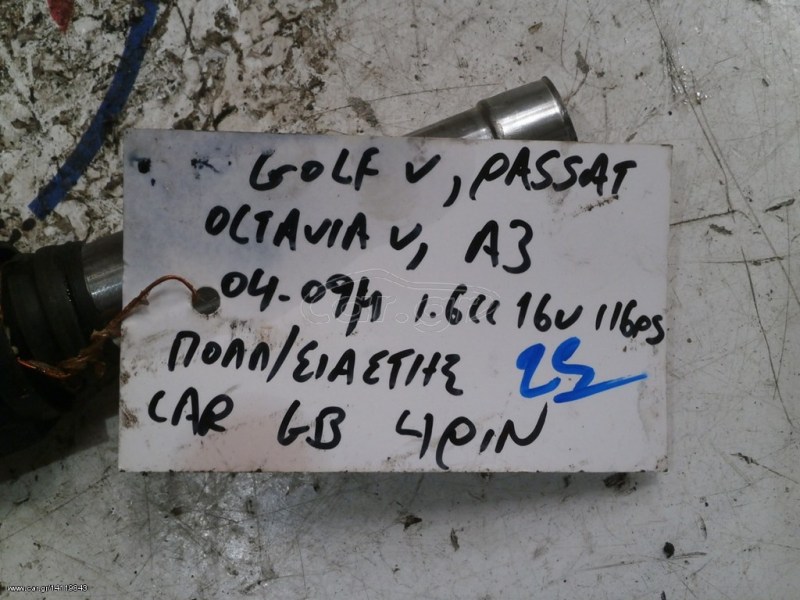 GOLF V, PASSAT
OCTAVIA V, A3
04-09/Η 1.6cc 16V 116PS
ΠΟΛΛ/ΣΙΑΣΤΗΣ 25
CAR GB 4PIN
www.car.gr/14119843